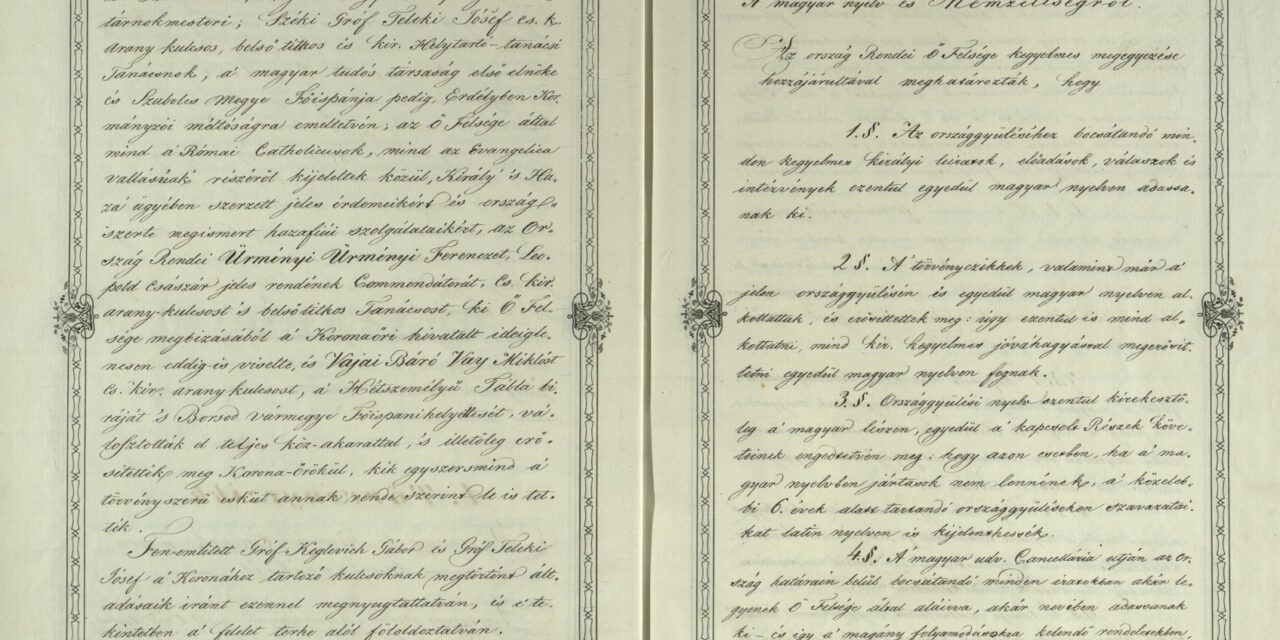 tárnokmesteri; Széki Gróf Teleki Jósef cs. k.
arany kulcsos, belső titkos és kir. Helytartó-tanácsi
Tanácsnok, a' magyar tudós társaság első elnöke
és Szabolcs Megye Főispánja pedig, Erdélyben Kor-
mányzói méltóságra emeltetvén; az Ő Felsége által
mind a' Római Catholicusok, mind az Evangelica
vallásúak részéről kijeleltek közül, Király 's Ha-
za ügyében szerzett jeles érdemeikért és ország-
szerte megismert hazafiúi szolgálataikért, az Or-
szág Rendei Ürményi Ürményi Ferenczet, Leo-
pold Császár jeles rendének Commendátorát, Cs. kir.
arany-kulcsost 's belső titkos Tanácsost, ki Ő Fel-
sége megbizásából a' Koronaőri hivatalt ideigle-
nesen eddig is viselte, és Vajai Báró Vay Miklóst
Cs. kir. arany kulcsost, a' Hétszemélyű Tábla bi-
ráját 's Borsod vármegye Főispáni helyettesét, vá-
losztották el teljes köz-akarattal, 's illetőleg erő-
sítették meg Korona-Őrökül, kik egyszersmind a'
törvényszerű esküt annak rende szerint le is tet-
ték.
Fen-említett Gróf Keglevich Gábor és Gróf Teleki
Jósef a' Koronához tartozó kulcsoknak megtörtént ált-
adásaik iránt ezennel megnyugtattatván, és e' te-
kintetben a' felelet terhe alól föloldoztatván.
A magyar nyelv és Nemzetiségről.
Az ország Rendei Ő Felsége kegyelmes megegyezése
hozzájárultával meghatározták, hogy
1. §. Az országgyüléséhez bocsátandó min-
den kegyelmes királyi leiratok, előadások, válaszok és
intézvények ezentul egyedül magyar nyelven adassa-
nak ki.
2 §. A törvényczikkek, valamint már a'
jelen országgyülésén is egyedül magyar nyelven al-
kottattak, és erősittettek meg: úgy ezentul is mind al-
kottatni, mind kir. kegyelmes jóváhagyással megerősit-
tetni egyedül magyar nyelven fognak.
3. §. Országgyülési nyelv ezentul kirekesztő-
leg a' magyar lészen, egyedül a' kapcsolt Részek köve-
teinek engedtetvén meg: hogy azon esetben, ha a' ma-
gyar nyelvben jártasok nem lennének, a' közeleb-
bi 6. évek alatt tartandó országgyüléseken szavazatai-
kat latin nyelven is kijelenthessék.
4. §. A' magyar udv. Cancellária utján az or-
szág határain belül bocsátandó minden iratokban akár le-
gyenek Ő Felsége által aláirva, akár nevében adassanak
ki – és igy a' magány folyamodásokra kelendő rendeletekben,